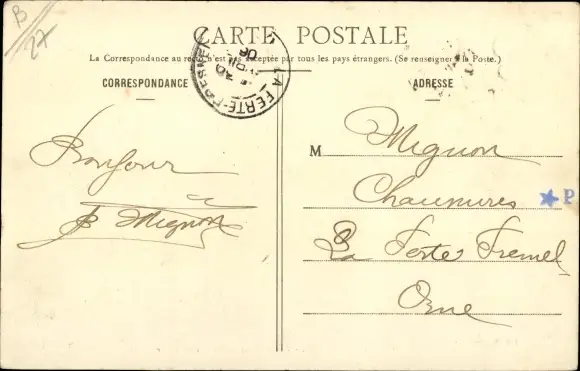 B
27
CARTE POSTALE
La Correspondance au recto n'est pas acceptée par tous les pays étrangers. (Se renseigner à la Poste.)
CORRESPONDANCE
Bonjour
B Mignon
LA FERTÉ-FRESNEL
ADRESSE
M Mignon
Chaumires
La Ferte Fremel
Orne
P